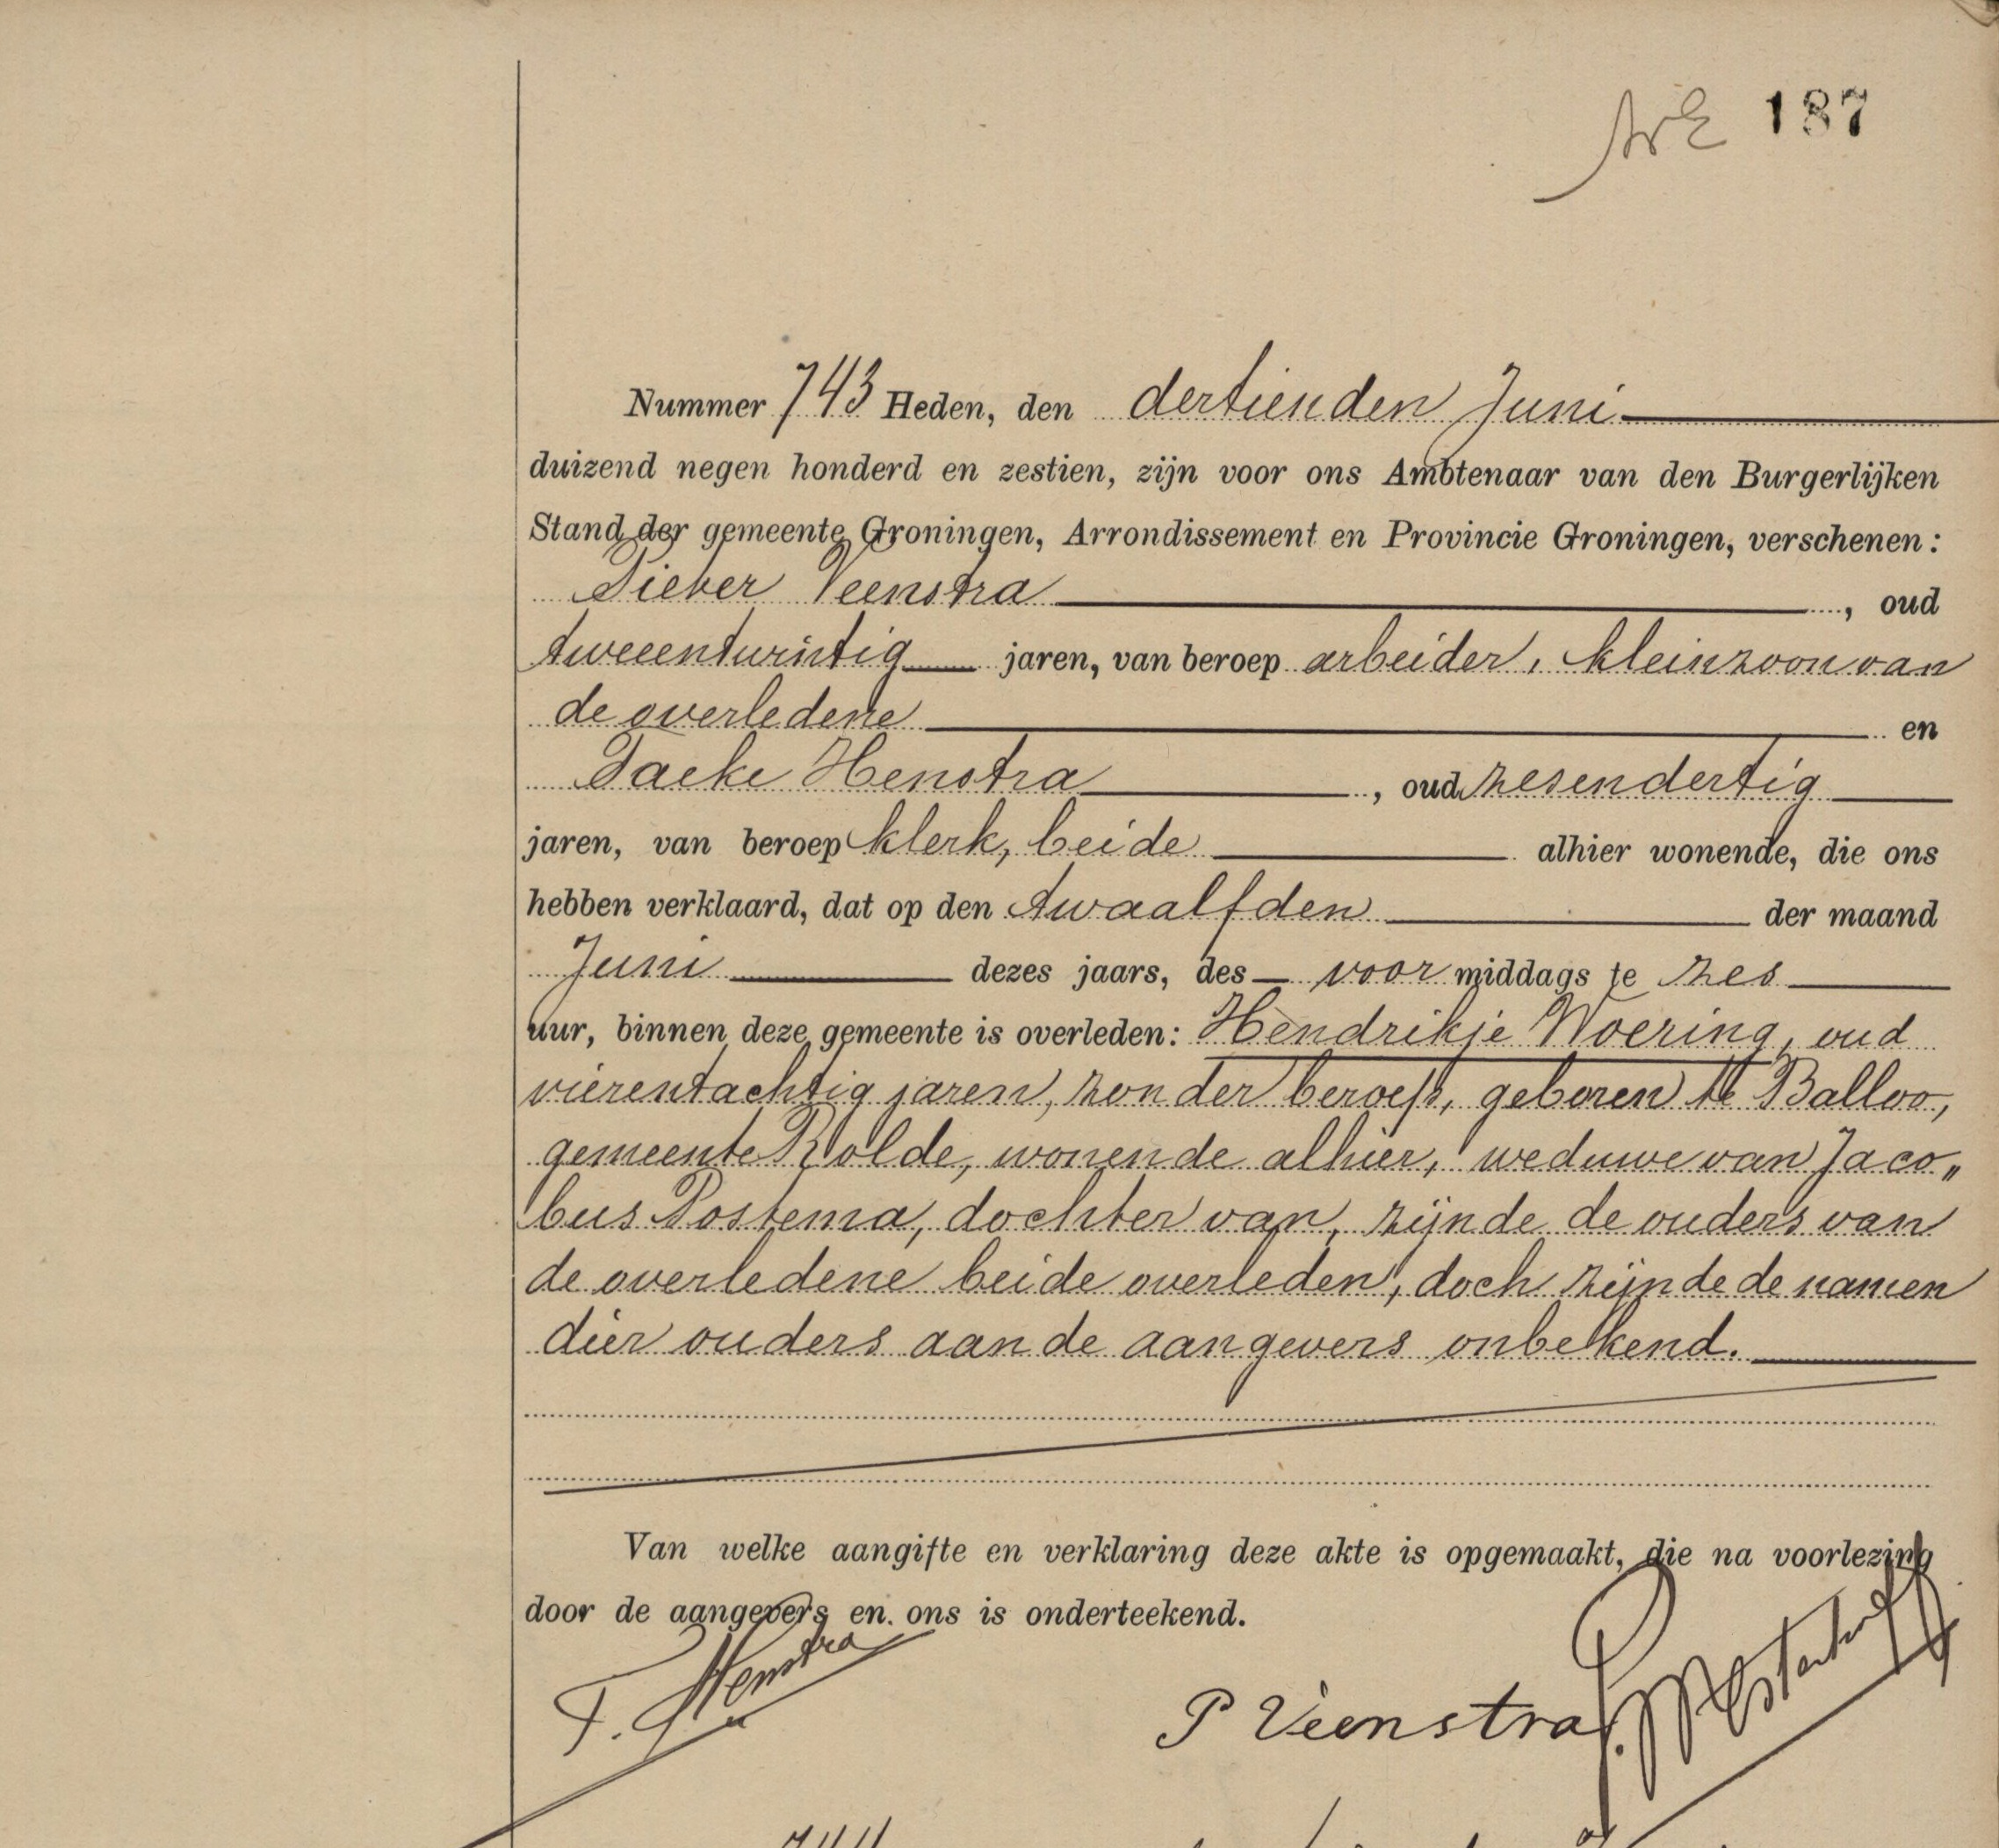 187
Nummer 743 Heden, den dertienden Juni
duizend negen honderd en zestien, zijn voor ons Ambtenaar van den Burgerlijken
Stand der gemeente Groningen, Arrondissement en Provincie Groningen, verschenen:
Pieter Veenstra, oud
tweeentwintig jaren, van beroep arbeider, kleinzoon van
de overledene en
Taeke Henstra, oud zesendertig
jaren, van beroep klerk, beide alhier wonende, die ons
hebben verklaard, dat op den twaalfden der maand
Juni dezes jaars, des voor middags te zes
uur, binnen deze gemeente is overleden: Hendrikje Woering, oud
vierentachtig jaren, zonder beroep, geboren te Balloo,
gemeente Rolde, wonende alhier, weduwe van Jaco„
bus Postema, dochter van, zijnde de ouders van
de overledene beide overleden, doch zijnde de namen
dier ouders aan de aangevers onbekend.
Van welke aangifte en verklaring deze akte is opgemaakt, die na voorlezing
door de aangevers en ons is onderteekend.
T. Henstra
P Veenstra